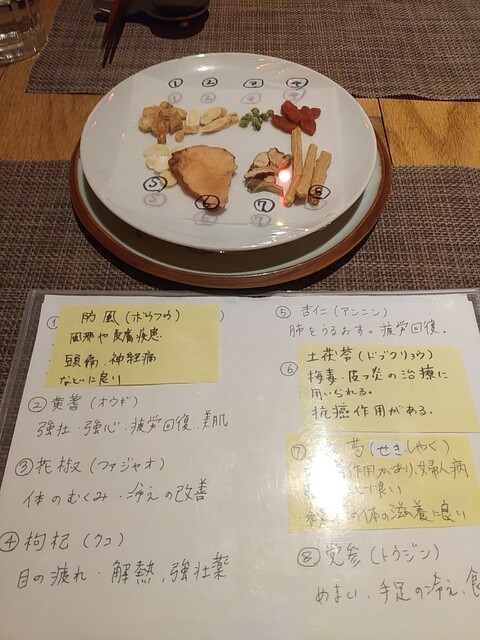 ① ② ③ ④
⑤ ⑥ ⑦ ⑧
① 防風(ボウフウ) )
風邪や皮膚疾患
頭痛、神経痛
などに良い
② 黄蓍(オウギ)
強壮・強心・疲労回復、美肌
③ 花椒(ファジャオ)
体のむくみ・冷えの改善
④ 枸杞(クコ)
目の疲れ・解熱、強壮薬
⑤ 杏仁(アンニン)
肺をうるおす。疲労回復。
⑥ 土茯苓(ドブクリョウ)
梅毒・皮フ炎の治療に
用いられる。
抗癌作用がある。
⑦ 芍(せきしゃく)
作用があり、婦人病
に良い
の体の滋養に良い
⑧ 党参(トウジン)
めまい、手足の冷え、食